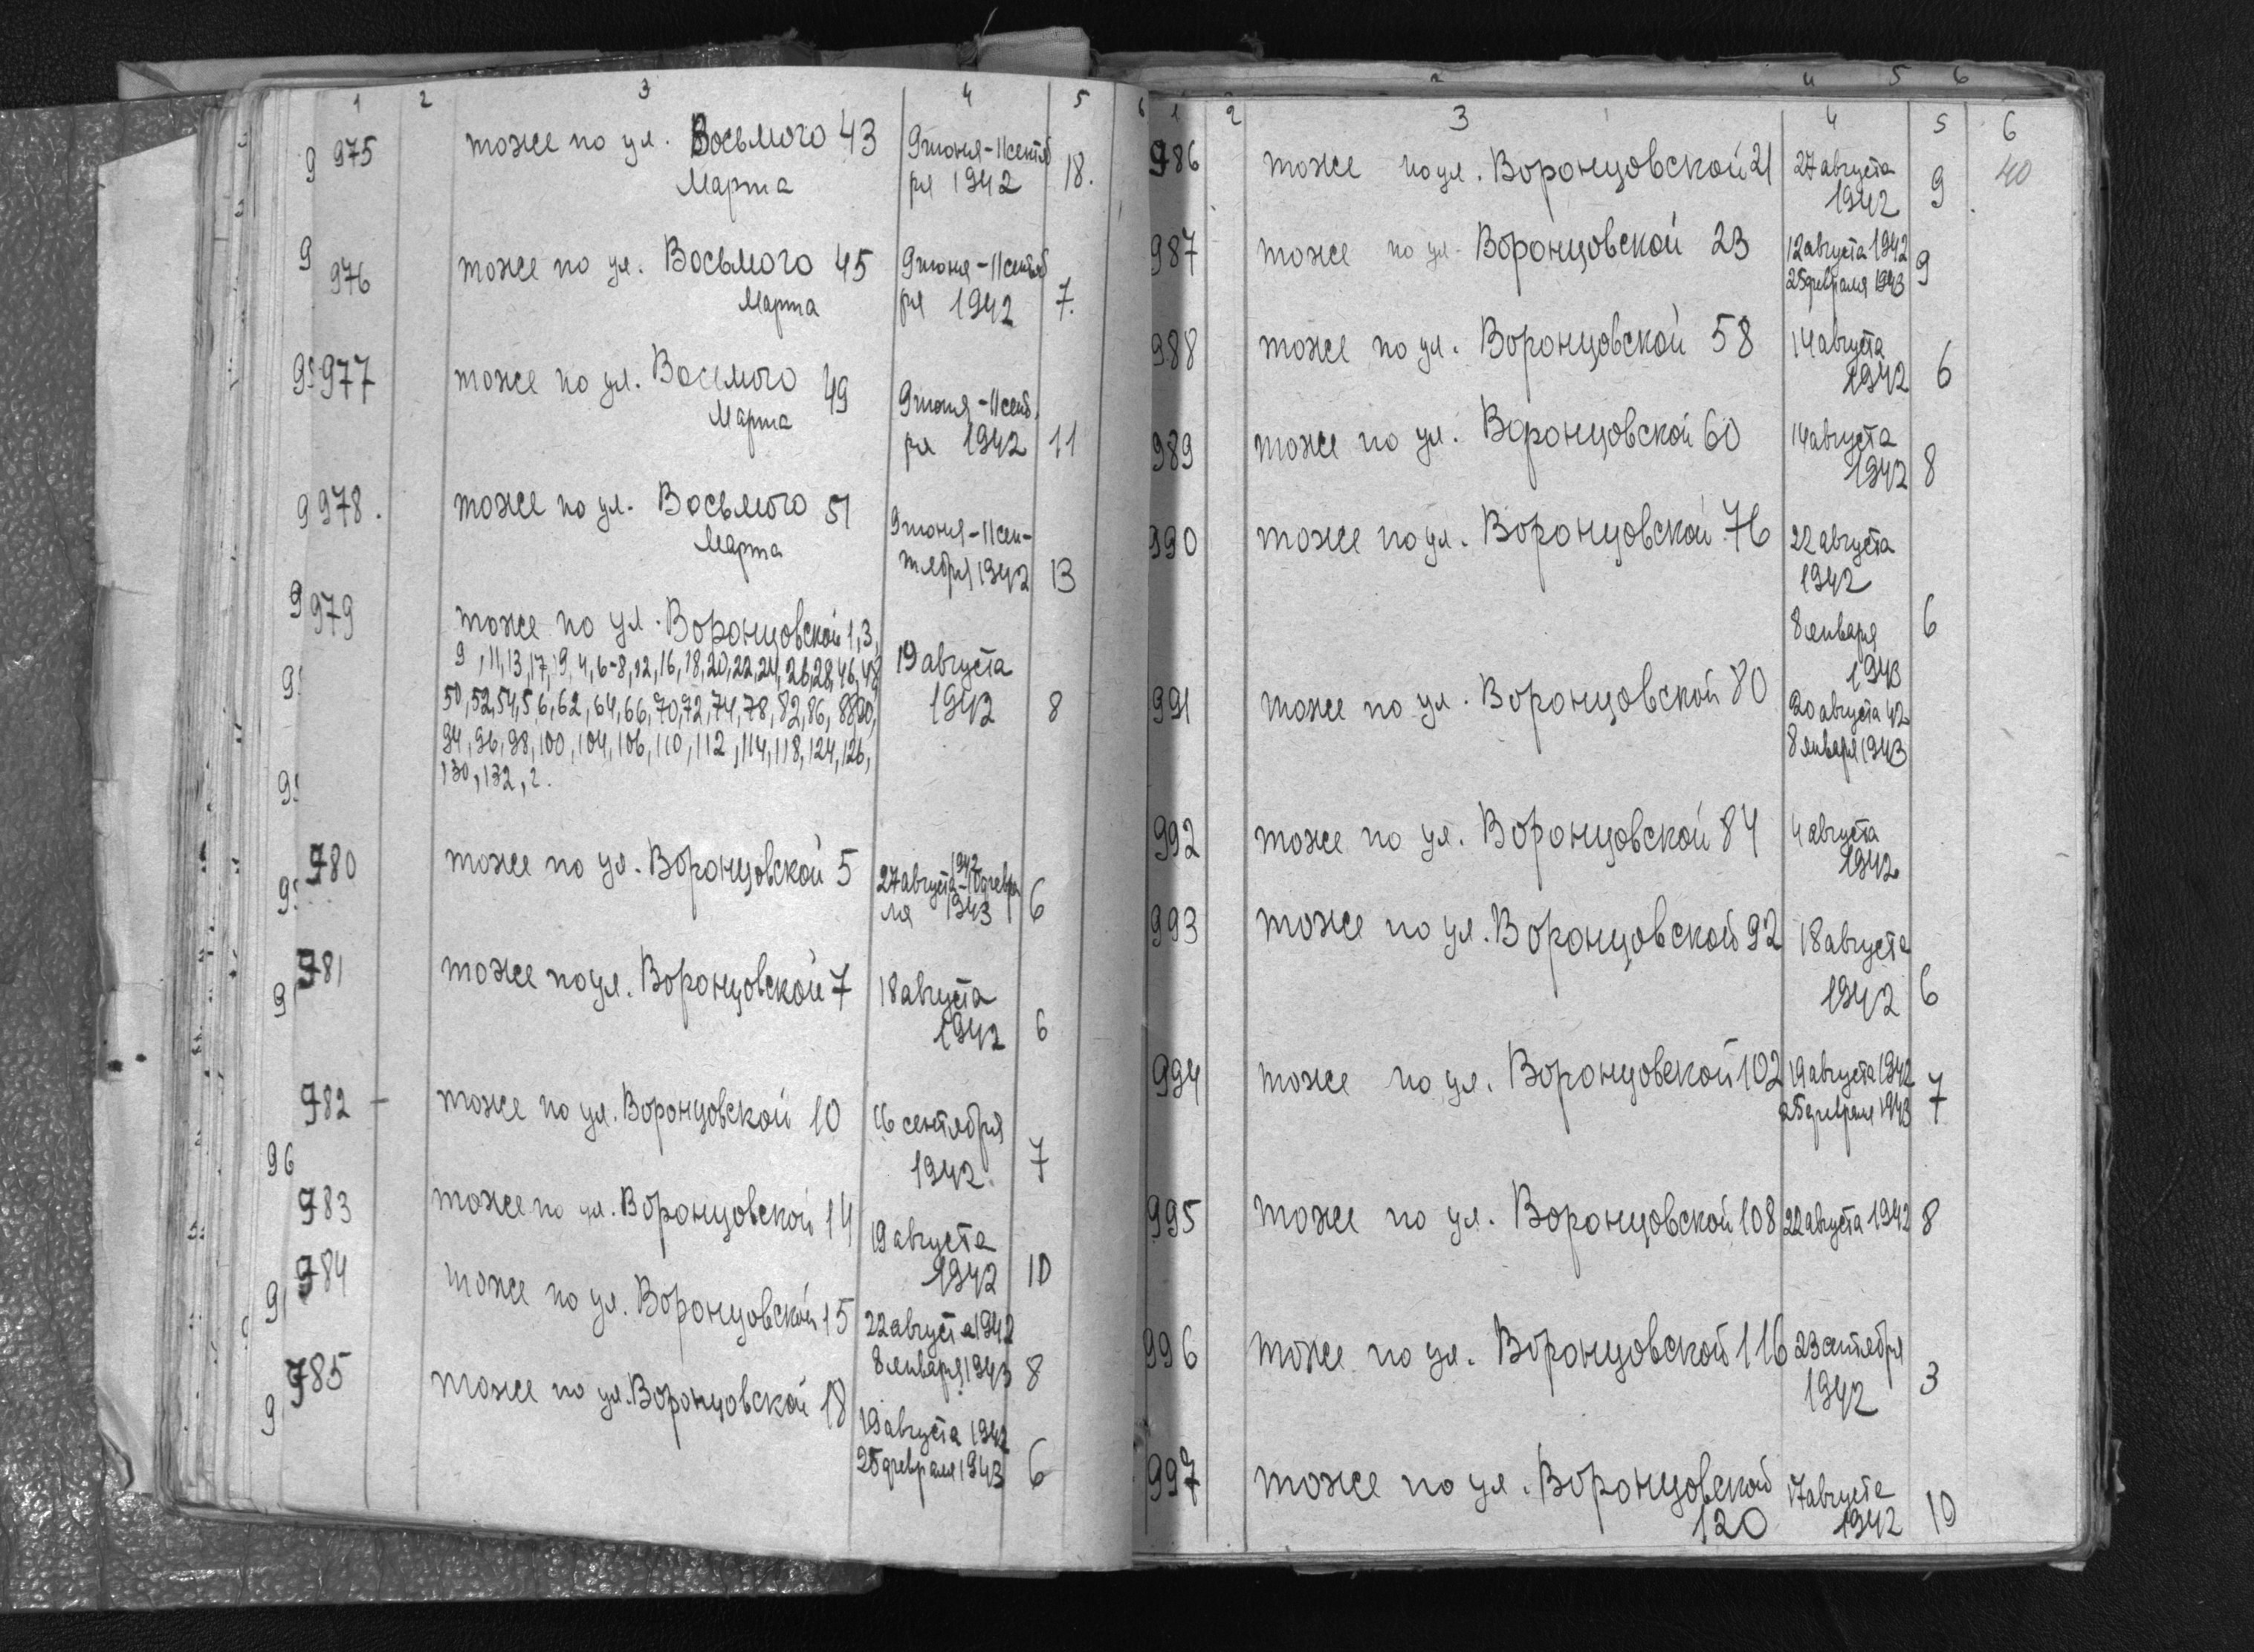 1 2 3 4 5
975 тоже по ул. Восьмого 43 9 июня-11 сентяб
Марта ря 1942 18.
976 тоже по ул. Восьмого 45 9 июня-11 сентяб
Марта ря 1942 7.
977 тоже по ул. Восьмого 49 9 июня-11 сентб.
Марта ря 1942 11
978. тоже по ул. Восьмого 51 9 июня-11 сен-
Марта тября 1942 13
979 тоже по ул. Воронцовской 1,3,
9,11,13,17,19,4,6-8,12,16,18,20,22,24,26,28,46,48 19 августа
50,52,54,56,62,64,66,70,72,74,78,82,86,8890, 1942 8
94,96,98,100,104,106,110,112,114,118,124,126,
130,132,2.
980 тоже по ул. Воронцовской 5 27 августа 1942-10 февра
ля 1943 6
981 тоже по ул. Воронцовской 7 18 августа
1942 6
982 - тоже по ул. Воронцовской 10 16 сентября
1942. 7
983 тоже по ул. Воронцовской 14 19 августа
1942 10
984 тоже по ул. Воронцовской 15 22 августа 1942
8 января 1943 8
985 тоже по ул. Воронцовской 18 19 августа 1942
25 февраля 1943 6
1 2 3 4 5 6
986 тоже по ул. Воронцовской 21 27 августа 40
1942 9
987 тоже по ул. Воронцовской 23 12 августа 1942
25 февраля 1943 9
988 тоже по ул. Воронцовской 58 14 августа
1942 6
989 тоже по ул. Воронцовской 60 14 августа
1942 8
990 тоже по ул. Воронцовской 76 22 августа
1942
8 января 6
1943
991 тоже по ул. Воронцовской 80 20 августа 42
8 января 1943
992 тоже по ул. Воронцовской 84 4 августа
1942
993 тоже по ул. Воронцовской 92 18 августа
1942 6
994 тоже по ул. Воронцовской 102 19 августа 1942
25 февраля 1943 7
995 тоже по ул. Воронцовской 108 22 августа 1942 8
996 тоже по ул. Воронцовской 116 23 сентября
1942 3
997 тоже по ул. Воронцовской 17 августа
120 1942 10